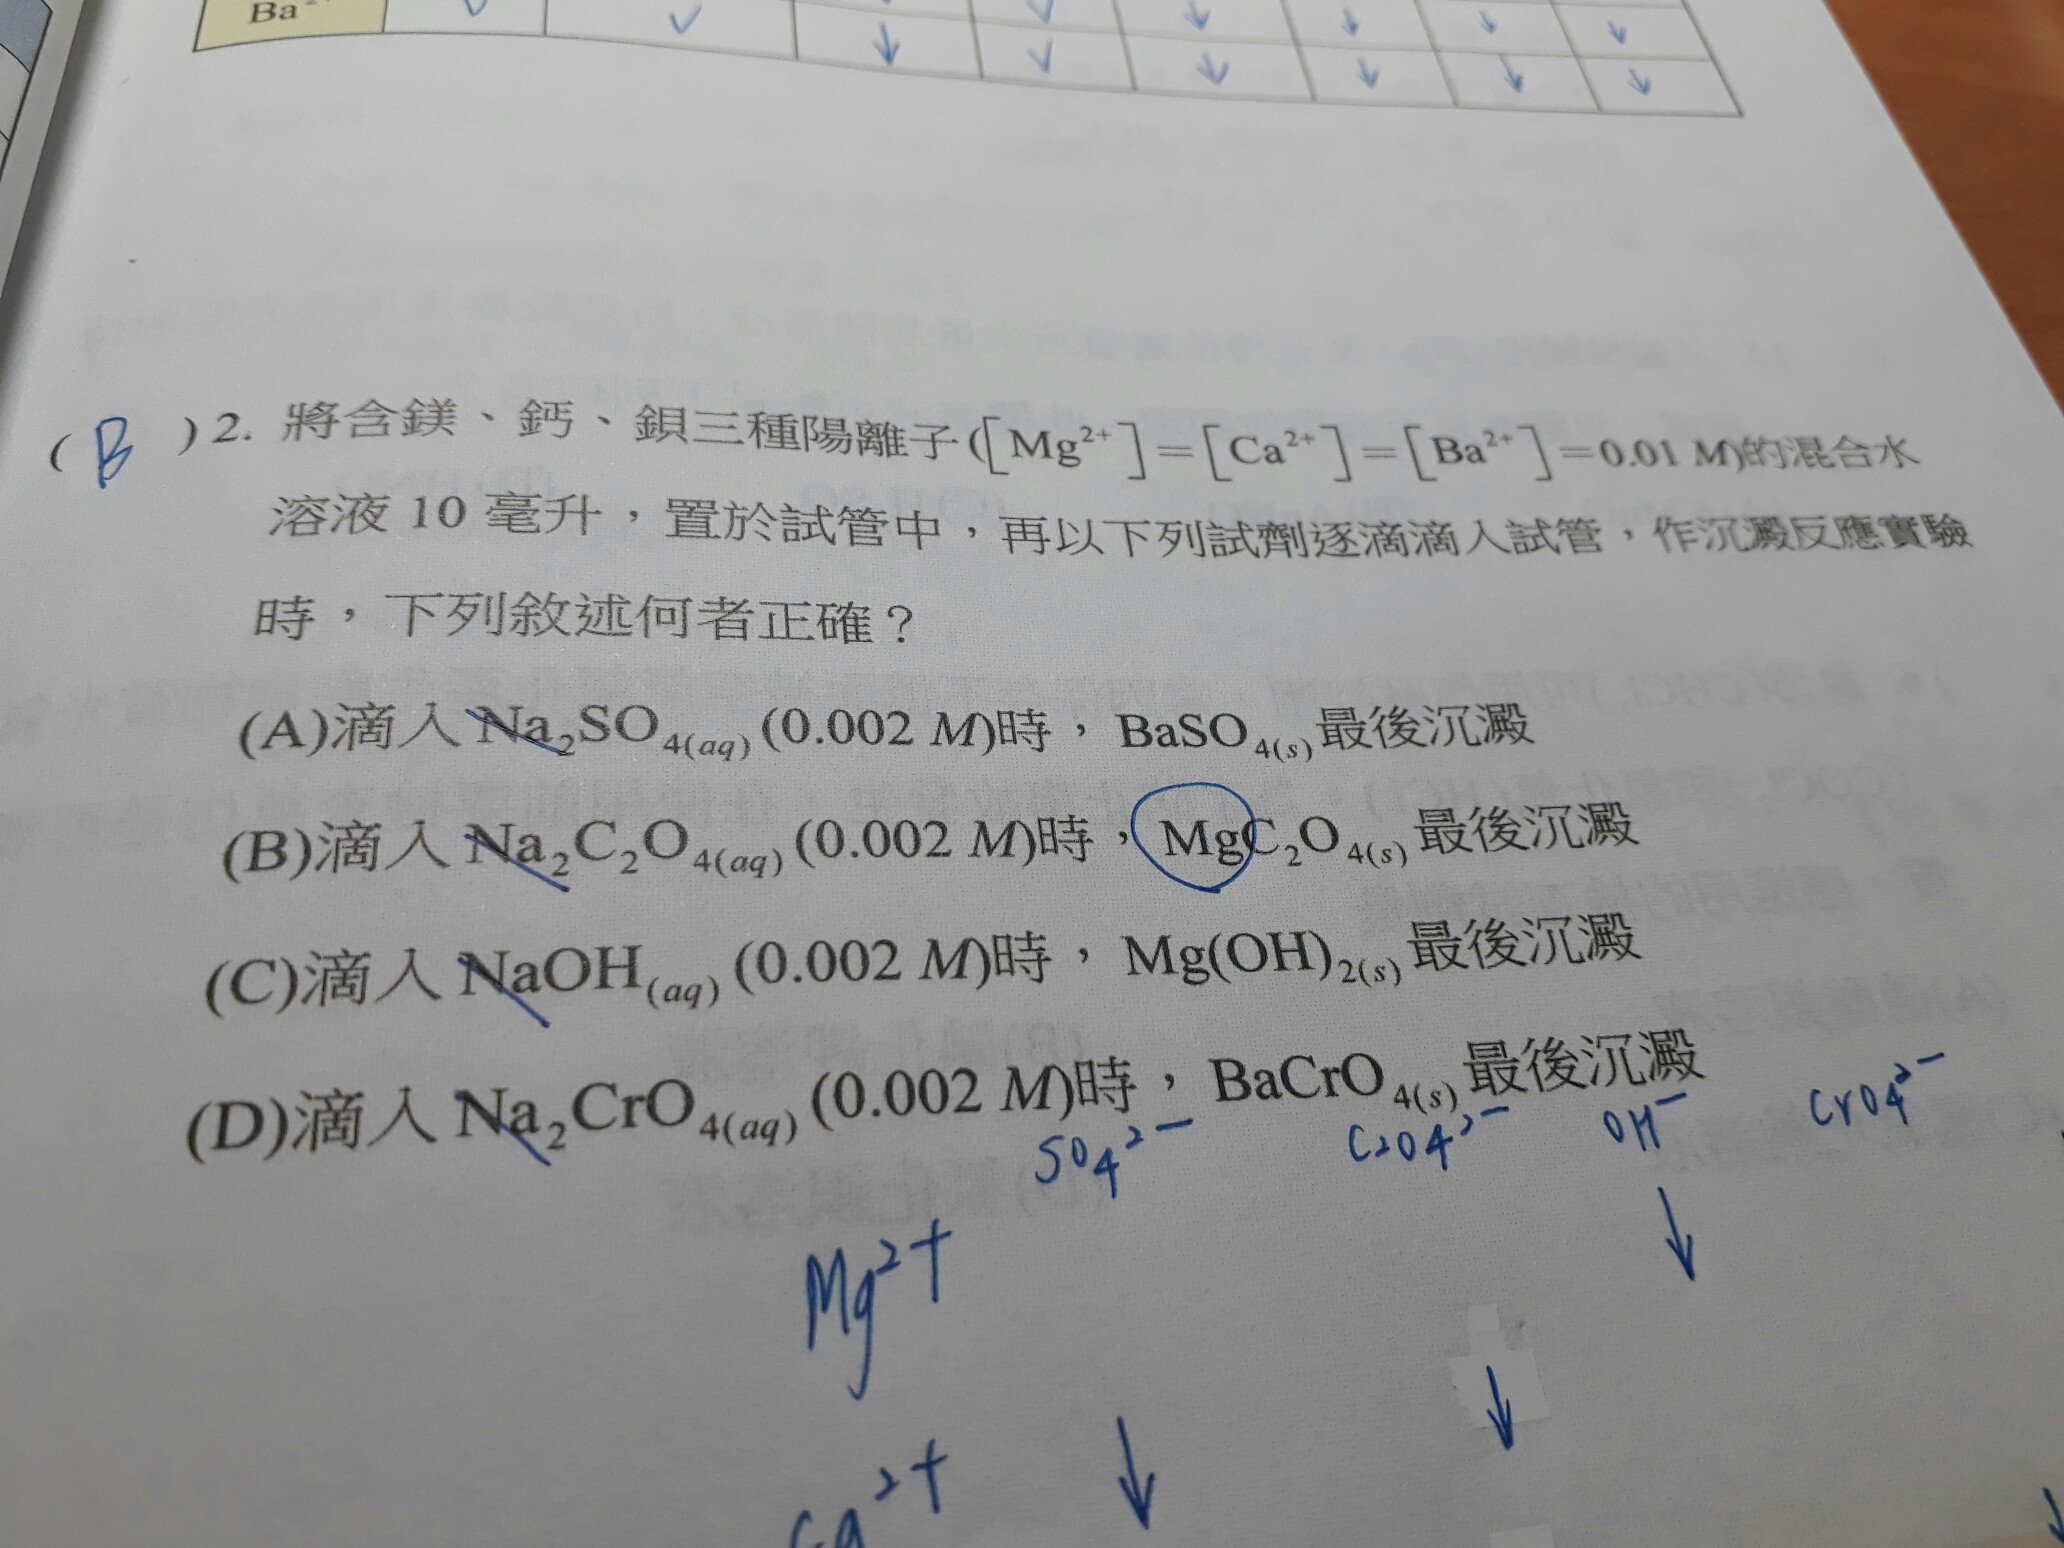 Ba
( B )2. 將含鎂、鈣、鋇三種陽離子([Mg²⁺]=[Ca²⁺]=[Ba²⁺]=0.01 M)的混合水
溶液 10 毫升，置於試管中，再以下列試劑逐滴滴入試管，作沉澱反應實驗
時，下列敘述何者正確？
(A)滴入 Na₂SO₄(aq) (0.002 M)時，BaSO₄(s)最後沉澱
(B)滴入 Na₂C₂O₄(aq) (0.002 M)時，MgC₂O₄(s)最後沉澱
(C)滴入 NaOH(aq) (0.002 M)時，Mg(OH)₂(s)最後沉澱
(D)滴入 Na₂CrO₄(aq) (0.002 M)時，BaCrO₄(s)最後沉澱
SO₄²⁻ C₂O₄²⁻ OH⁻ CrO₄²⁻
Mg²⁺ ↓
Ca²⁺ ↓ ↓